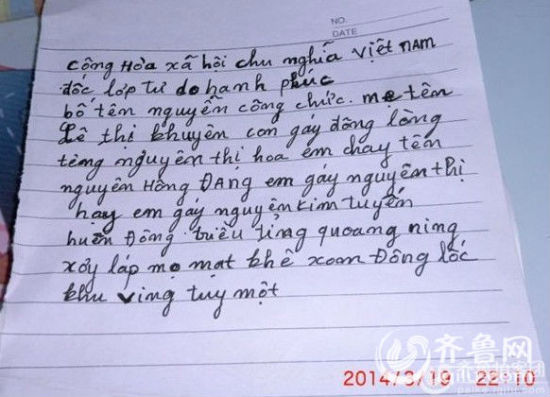 NO.
DATE
công Hòa xã hội chu nghĩa việt NAM
dốc lớp tư do hanh phúc
bố tên nguyễn công chức. mẹ tên
Lê thị khuyên con gáy đông lòng
tèng nguyên thị hoa em chay tên
nguyên Hồng ĐANG em gáy nguyên thị
hay em gáy nguyên kim tuyến
huên Đông triều tỉng quoang ning
xởy láp mẹ mạt khê xoan Đông lốc
khu ving tuy một
齐鲁网
2014/3/19 22:10